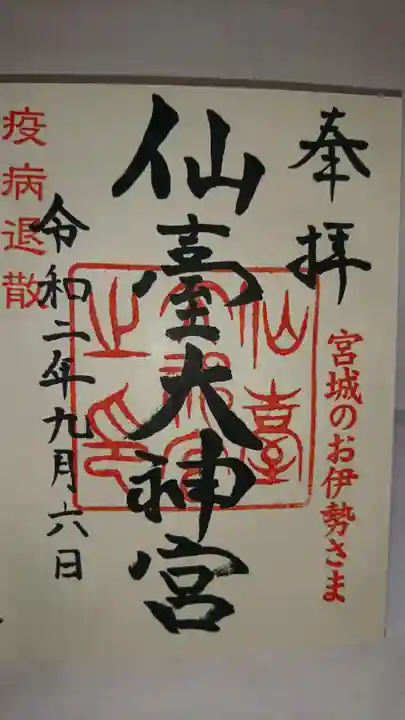 奉拝
宮城のお伊勢さま
仙臺大神宮
仙臺
大神宮
之印
令和二年九月六日
疫病退散